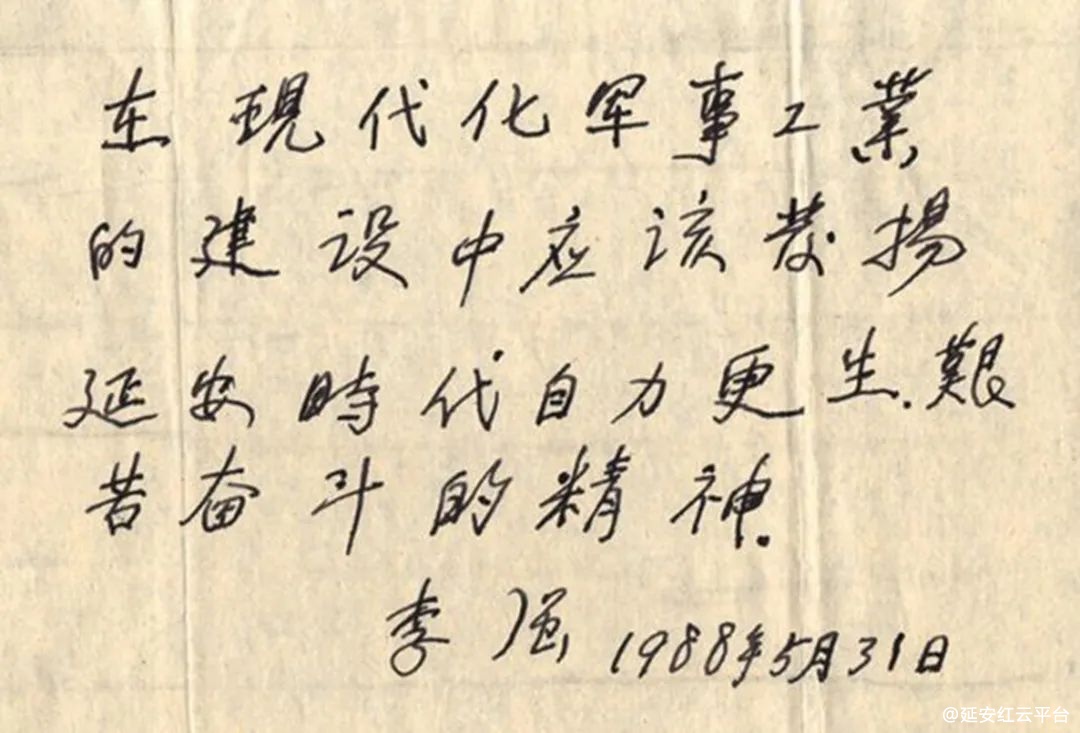 在现代化军事工業
的建设中应该发揚
延安時代自力更生.艱
苦奋斗的精神.
李强 1988年5月31日
@延安红云平台